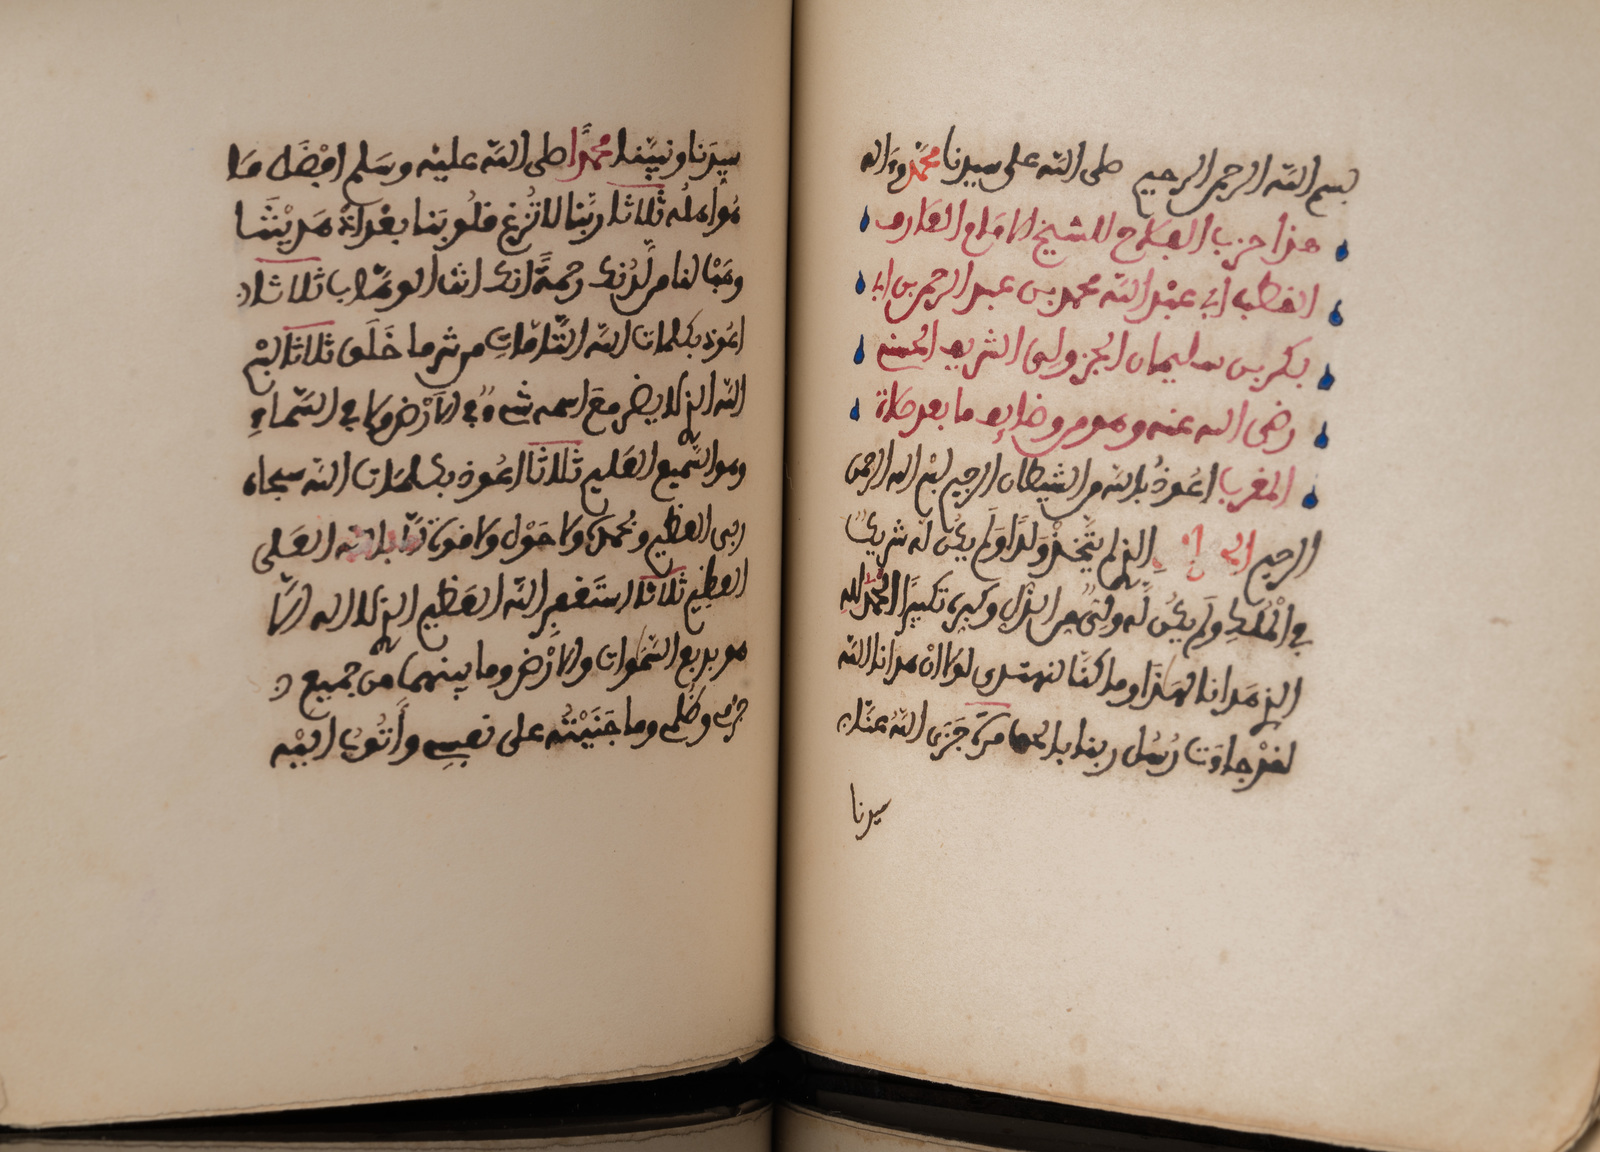 بسم الله الرحمن الرحيم صلى الله على سيدنا محمد وءاله
هذا حزب الفلاح للشيخ الامام العارف
القطب أبي عبد الله محمد بن عبد الرحمن ابى
بكر بن سليمان الجزولى الشريف الحسنى
رضى الله عنه وهو من وظايف ما بعد صلاة
المغرب اعوذ بالله من الشيطان الرجيم بسم الله الرحمن
الرحيم الذي لم يتخذ ولدا ولم يكن له شريك
في الملك ولم يكن له ولي من الذل وكبره تكبيرا الحمد لله
الذي هدانا لهذا وما كنا لنهتدى لولا ان هدانا الله
لقد جاءت رسل ربنا بالحق جزى الله عنا
سيدنا
سيدنا ونبينا محمدا صلى الله عليه وسلم افضل ما
هو أهله ثلاثا ربنا لا تزغ قلوبنا بعد اذ هديتنا
وهب لنا من لدنك رحمة انك انت الوهاب ثلاثا
اعوذ بكلمات الله التامات من شر ما خلق ثلاثا بسم
الله الذي لا يضر مع اسمه شيء في الأرض ولا في السماء
وهو السميع العليم ثلاثا اعوذ بكلمات الله سبحان
ربى العظيم وبحمده ولا حول ولا قوة الا بالله العلى
العظيم ثلاثا استغفر الله العظيم الذي لا اله الا
هو بديع السموات والأرض وما بينهما من جميع
جرمى وظلمى وما جنيته على نفسى وأتوب اليه